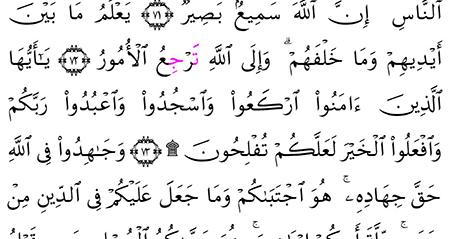 ٱلنَّاسِ إِنَّ ٱللَّهَ سَمِيعٌۢ بَصِيرٞ ٧١ يَعۡلَمُ مَا بَيۡنَ
أَيۡدِيهِمۡ وَمَا خَلۡفَهُمۡۚ وَإِلَى ٱللَّهِ تَرۡجِعُ ٱلۡأُمُورُ ٧٢ يَٰٓأَيُّهَا
ٱلَّذِينَ ءَامَنُواْ ٱرۡكَعُواْ وَٱسۡجُدُواْ وَٱعۡبُدُواْ رَبَّكُمۡ
وَٱفۡعَلُواْ ٱلۡخَيۡرَ لَعَلَّكُمۡ تُفۡلِحُونَ۩ ٧٣ وَجَٰهِدُواْ فِي ٱللَّهِ
حَقَّ جِهَادِهِۦۚ هُوَ ٱجۡتَبَىٰكُمۡ وَمَا جَعَلَ عَلَيۡكُمۡ فِي ٱلدِّينِ مِنۡ